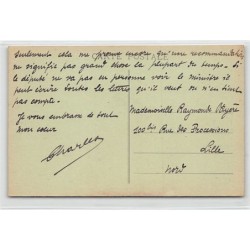 seulement cela me prouve encore qu'une recommandation
ne signifie pas grand chose la plupart du temps. Si
CARTE POSTALE
le député ne va pas en personne voir le ministre il
peut écrire toutes les lettres qu'il veut on n'en tient
pas compte.
Je vous embrasse de tout
mon cœur
Charles
Mademoiselle Raymonde
100bis Rue des Processions
Lille
Nord